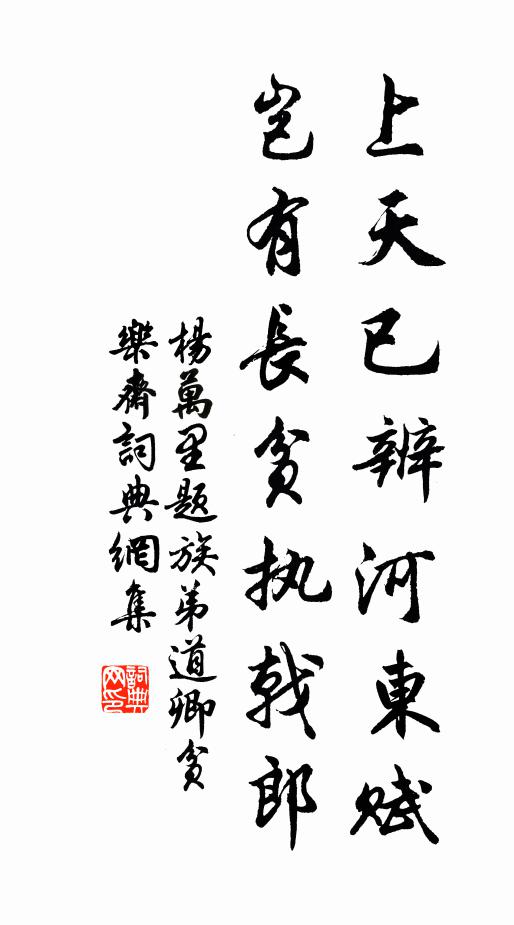 上天已辦河東賦
豈有長貧执戟郎
楊萬里题族弟道卿貧
樂齋詞典網集
詞典网印